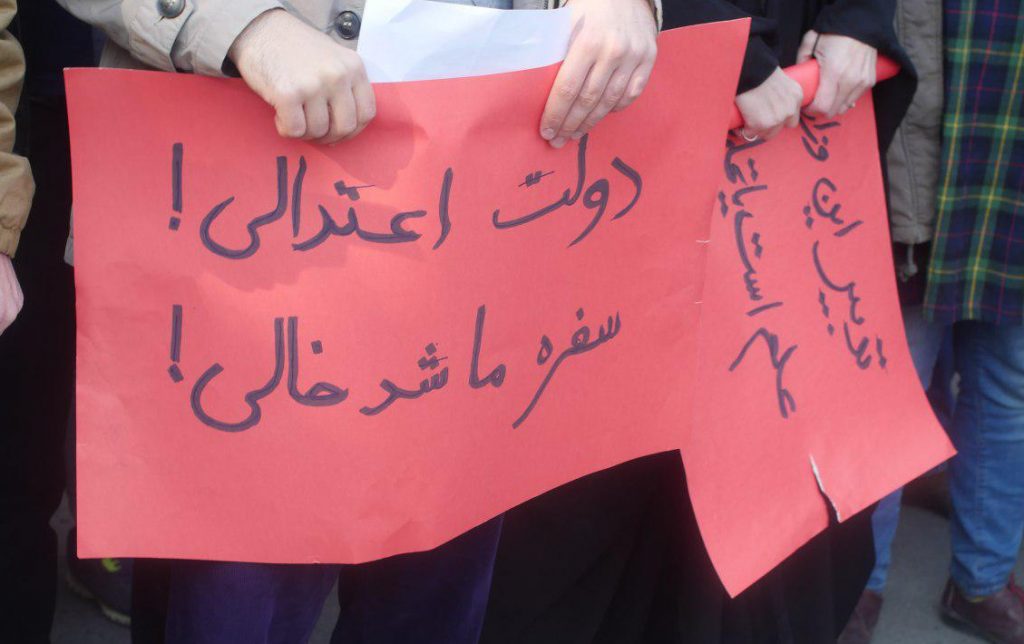 دولت اعتدالی!
سفره ما شد خالی!
تدبیر این
علم است یا